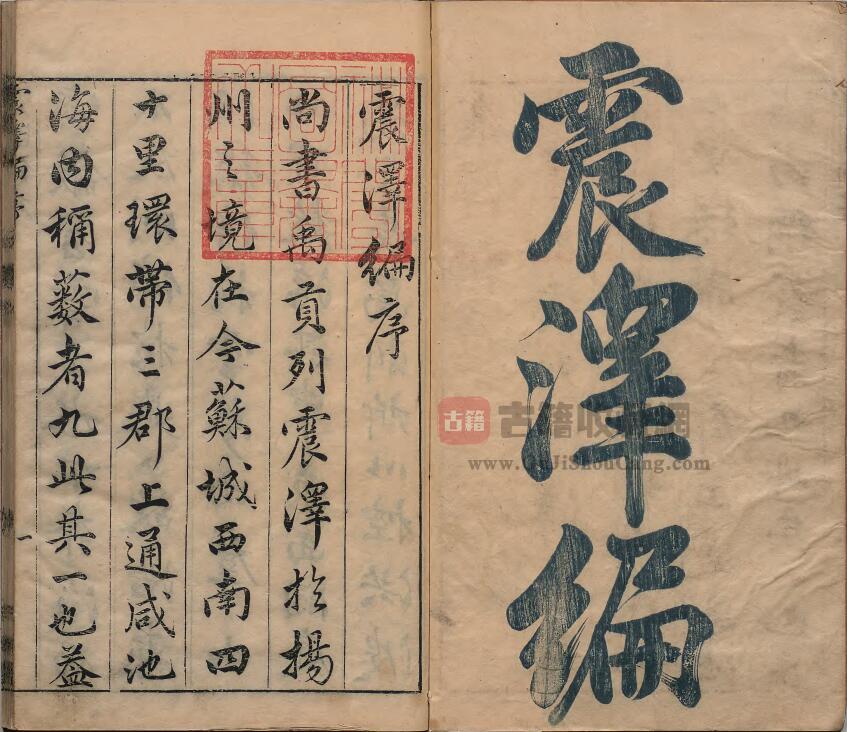 震澤編
震澤編序
尚書禹貢列震澤於揚
州之境在今蘇城西南四
十里環帶三郡上通咸池
海内稱藪者九此其一也益
震澤編序
一
古籍
古籍收藏網
www.GuJiShouCang.com